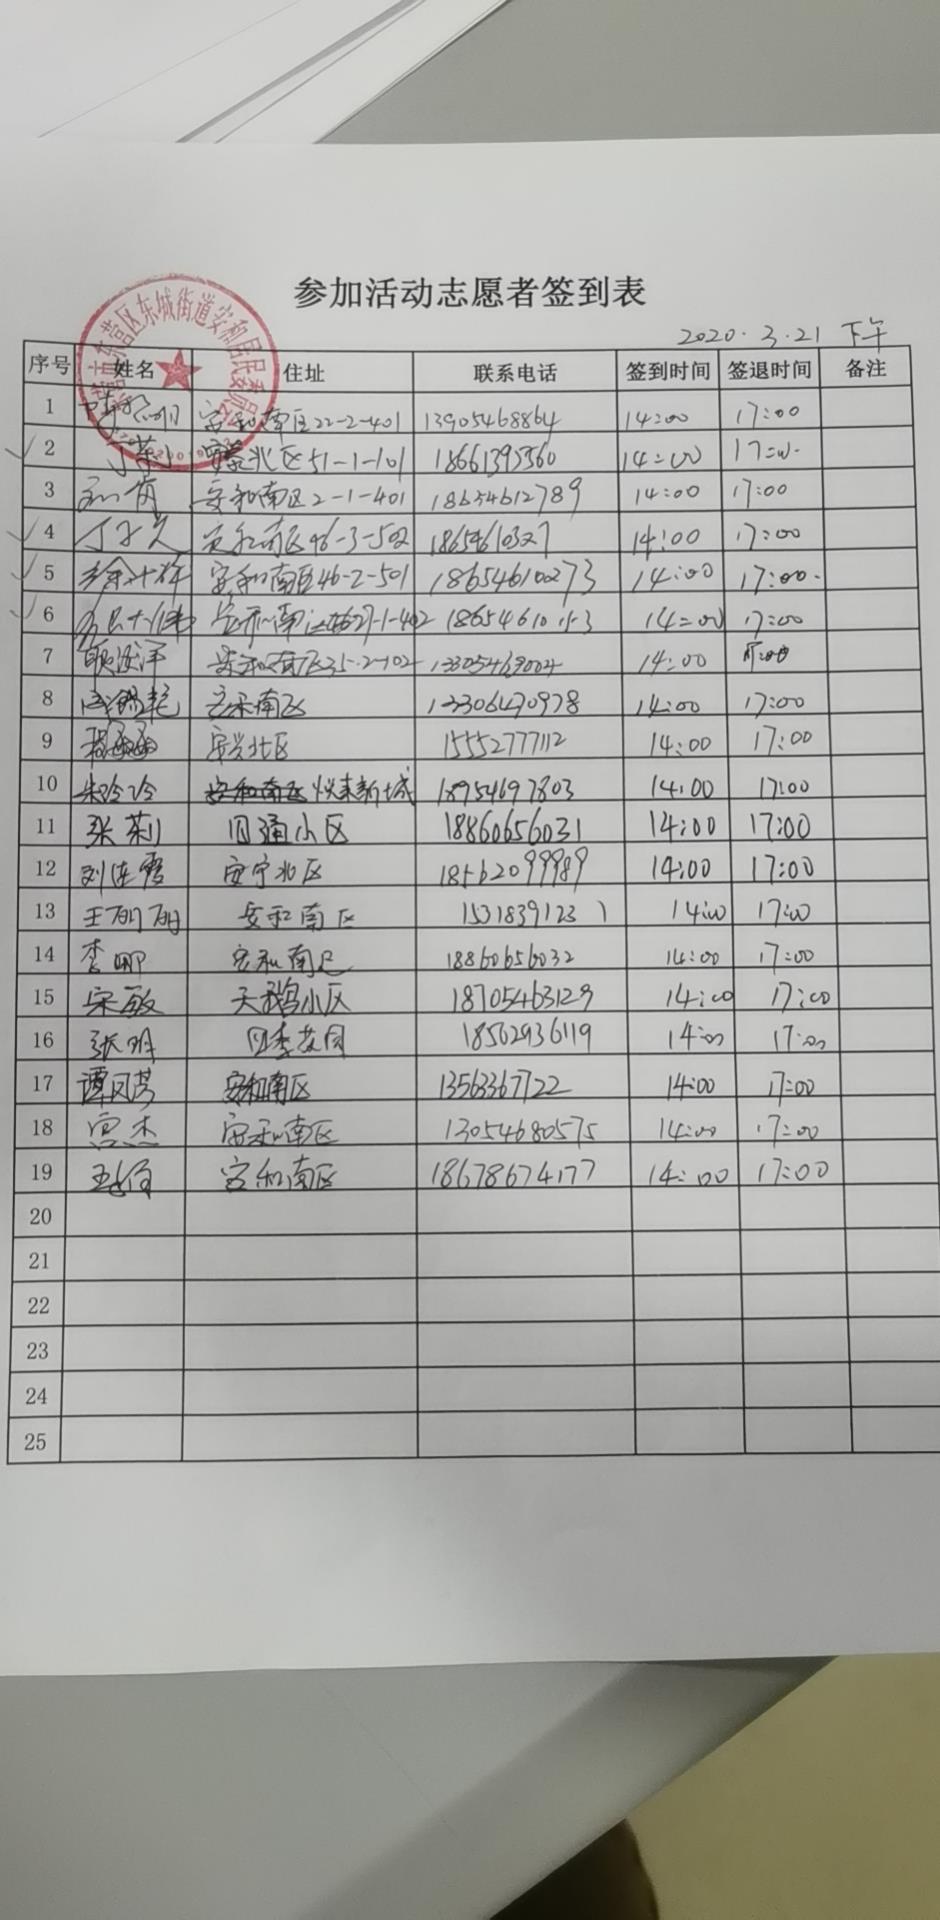 参加活动志愿者签到表
2020.3.21 下午
东营区东城街道安和居民委员会
序号 姓名 住址 联系电话 签到时间 签退时间 备注
1 安和南区22-2-401 13905468864 14:00 17:00
2 北区51-1-101 18661393360 14:00 17:00
3 安和南区2-1-401 18654612789 14:00 17:00
4 安和南区96-3-502 14:00 17:00
5 安和南区46-2-501 18654610273 14:00 17:00
6 安和南 14:00 17:00
7 安和南区35-2-102 13305469004 14:00 17:00
8 安和南区 13306470978 14:00 17:00
9 安兴北区 15552777112 14:00 17:00
10 朱玲玲 悦来新城 18954697803 14:00 17:00
11 张莉 四通小区 18860656031 14:00 17:00
12 刘连霞 安宁北区 18562099989 14:00 17:00
13 王丽丽 安和南区 15318391231 14:00 17:00
14 李娜 安和南区 18860656032 14:00 17:00
15 宋敏 天鹅小区 18705463129 14:00 17:00
16 张明 四季花园 18562936119 14:00 17:00
17 谭凤芳 安和南区 13563367722 14:00 17:00
18 宫杰 安和南区 13054680575 14:00 17:00
19 安和南区 18678674177 14:00 17:00
20
21
22
23
24
25